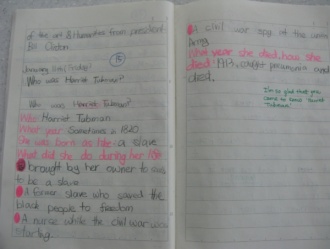 of the art & Humanities from president
Bill Clinton
January 11th (Friday)
Who was Harriet Tubman?
Who was Harriet Tubman?
Who Harriet Tubman
What year Sometimes a 1820
She was born as like a slave
What did she do during her life
brought by her owner to
to be a slave
A former slave who saved the
black people to freedom
A nurse while the civil war was
starting.
A civil war spy of the union
Army
What year she died, how she
died? 1913, caught pneumonia and
died.
I'm so glad that you
came to know Harriet
Tubman!